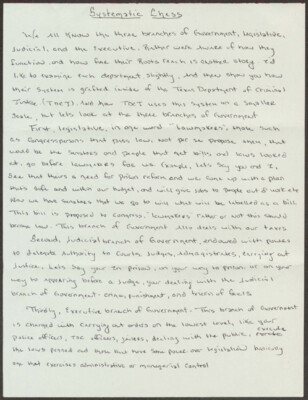 Systematic Chess
We all know the three branches of Government, legislative,
Judicial, and the Executive. But how they
function and how far their roots reach is another story. I'd
like to examine each department slightly, and then show you how
their system is grafted inside of the Texas Department of Criminal
Justice (TDCJ). And how TDCJ uses this system on a smaller
scale, but lets look at the three branches of Government
First, legislative, in one word "lawmakers", these such
as Congresspersons that pass laws. Not per se propose them, that
would be the Senators and people that get bills and laws
go before lawmakers for us. Example, Let's say you and I,
see that there's a need for prison reform and we come up with a plan
that's safe and within our budget, and will give jobs to people out of work etc
Now we find Senators that we go to who will be labelled as a Bill
This bill is proposed to Congress. "lawmakers" rather or not this should
become law. This branch of Government also deals with our taxes
Second, Judicial branch of Government, endowed with power
to delegate authority to Courts, Judges, Magistrates, carrying out
Justice. Lets say your in prison, on your way to prison, or on your
way to appearing before a Judge, your dealing with the Judicial
branch of Government. crime, punishment, and triers of facts
Thirdly, Executive branch of Government. This branch of Government
is charged with carrying out orders on the lowest level, like your
police officers, TDC officers, jailers, dealing with the public, execute
the laws passed out there has that same power over legislation basically
one that exercises administrative or managerial control